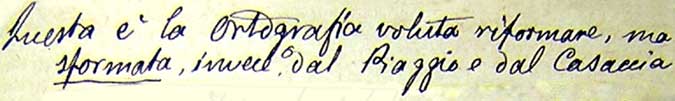 Questa è la Ortografia voluta riformare, ma
sformata, invece, dal Piaggio e dal Casaccia